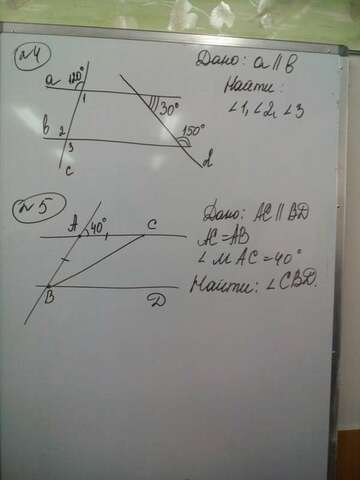 №4
Дано: a || b
Найти:
∠1, ∠2, ∠3
a 120° 1
30°
b 2 3 150°
c d
№5
Дано: AC || BD
AC = AB
∠MAC = 40°
Найти: ∠CBD.
A 40° C
B D